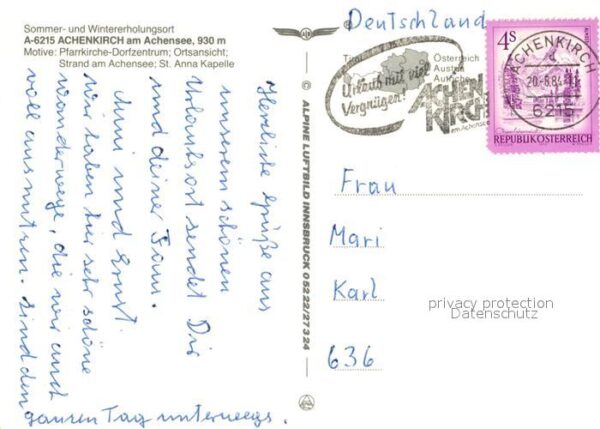 Sommer- und Wintererholungsort
A-6215 ACHENKIRCH am Achensee, 930 m
Motive: Pfarrkirche-Dorfzentrum; Ortsansicht;
Strand am Achensee; St. Anna Kapelle
Herzliche Grüße aus
unserem schönen
Urlaubsort sendet Dir
und deiner Fam.
Anni und Ernst.
wir haben hier sehr schöne
Wanderwege, die wir auch
voll ausnutzen. sind den
ganzen Tag unterwegs.
© ALPINE LUFTBILD INNSBRUCK 05222/27324
Deutschland
Österreich
Urlaub mit viel
Vergnügen!
ACHEN
KIRCH
am Achensee
4S
REPUBLIK ÖSTERREICH
ACHENKIRCH
20.-8.84
6215
Frau
Mari
Karl
636
privacy protection
Datenschutz